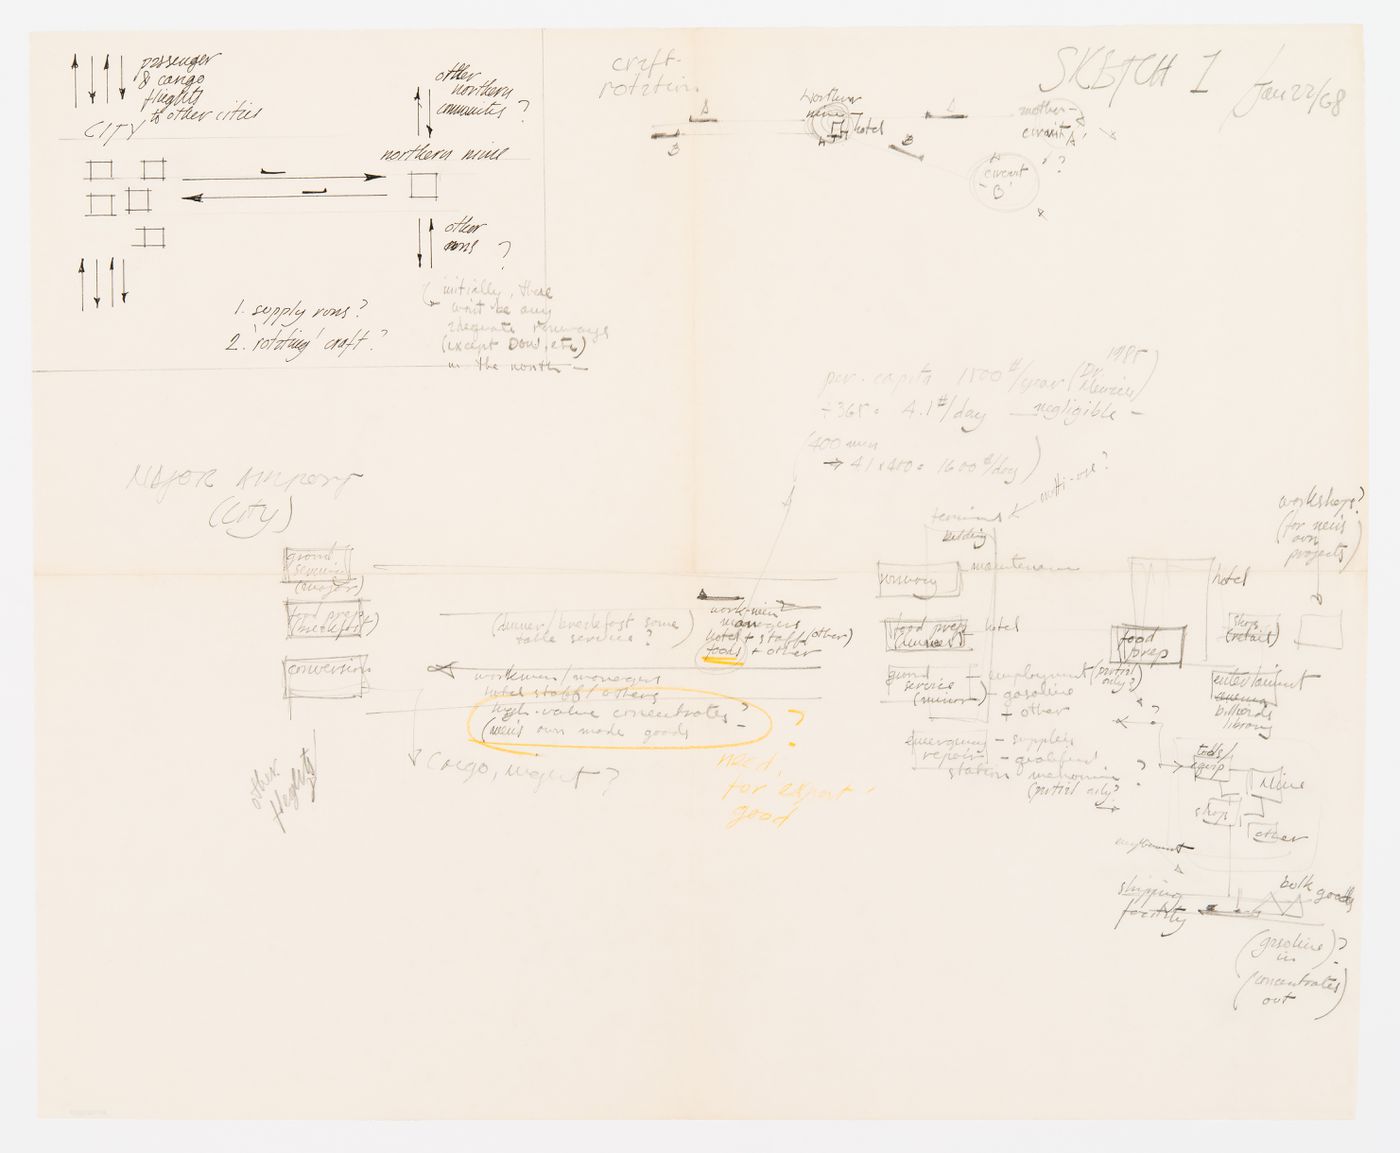 SKETCH 1
Jan 22/68
passenger
& cargo
flights
to other cities
CITY
other
northern
communities ?
northern mine
other
runs ?
1. supply runs ?
2. 'rotating' craft ?
initially, there
won't be any
adequate runways
(except Dow, etc)
in the north —
craft-
rotation
A
B
northern
mine
hotel
A
B
mother-
circuit A'
?
circuit
'B'
per. capita 1500#/year (Dr.
1985
÷365 = 4.1#/day — negligible —
(400 men
→ 4.1 x 400 = 1600#/day)
MAJOR AIRPORT
(CITY)
ground
service
(major)
food prep
(breakfast)
conversion
other
flights
(dinner/breakfast some
table service ?)
work-men
managers
hotel + staff (other)
foods + other
workmen/managers
hotel staff/others
high-value concentrates ?
(men's own made goods
Cargo, urgent ?
?
need,
for export
good
multi-use ?
terminus
building
maintenance
food prep
hotel
ground
service
(minor)
(partial
only ?)
- gasoline
- other
emergency
repair
station
- supplies
- qualified
(partial only ?
?
hotel
food
prep
shop
(retail)
workshops ?
(for men's
own
projects)
entertainment
billiards
library
?
tools/
equip
mine
shop
other
shipping
facility
bulk goods
(gasoline) ?
in
(concentrates)
out